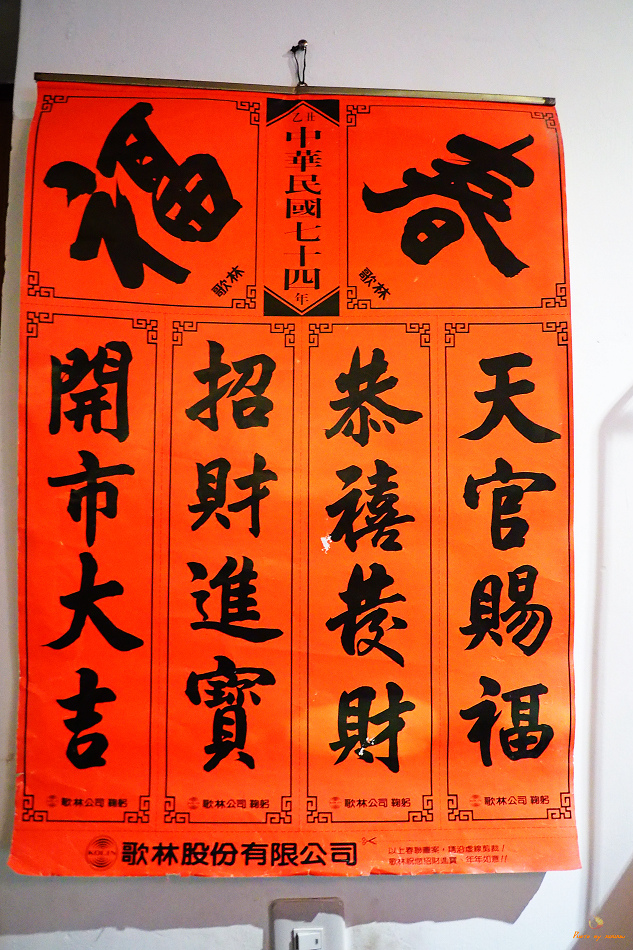 春
歌林
乙丑
中華民國七十四年
福
歌林
天官賜福
歌林公司 鞠躬
恭禧發財
歌林公司 鞠躬
招財進寶
歌林公司 鞠躬
開市大吉
歌林公司 鞠躬
KOLIN 歌林股份有限公司
以上春聯圖案，請沿虛線剪裁！
歌林祝您招財進寶，年年如意!!